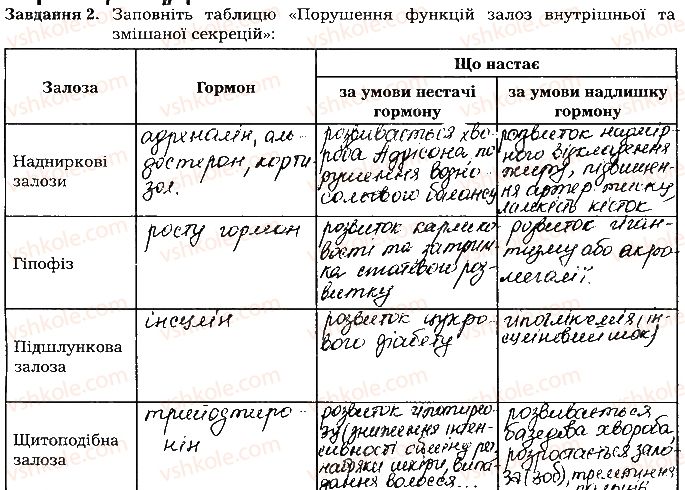 Завдання 2. Заповніть таблицю «Порушення функцій залоз внутрішньої та
змішаної секрецій»:
Залоза
Гормон
Що настає
за умови нестачі
гормону
за умови надлишку
гормону
Надниркові
залози
адреналін, аль-
достерон, корти-
зол.
розвивається хво-
роба Аддісона, по-
рушення водно
сольового балансу
розвиток надмір-
ного відкладення
жиру, підвищен-
ня артер. тиску,
ламкість кісток
Гіпофіз
росту гормон
розвиток карлико-
вості та затрим-
ка статевого роз-
витку
розвиток гіган-
тизму або акро-
мегалії.
Підшлункова
залоза
інсулін
розвиток цукро-
вого діабету
гіпоглікемія (ін-
суліновий шок)
Щитоподібна
залоза
трийодтиро-
нін
розвиток гіпотирео-
зу (зниження інтен-
сивності обміну ре,
набряки шкіри, випа-
дання волосся...
розвивається
базедова хвороба,
розростається зало-
за (зоб), тремтіння